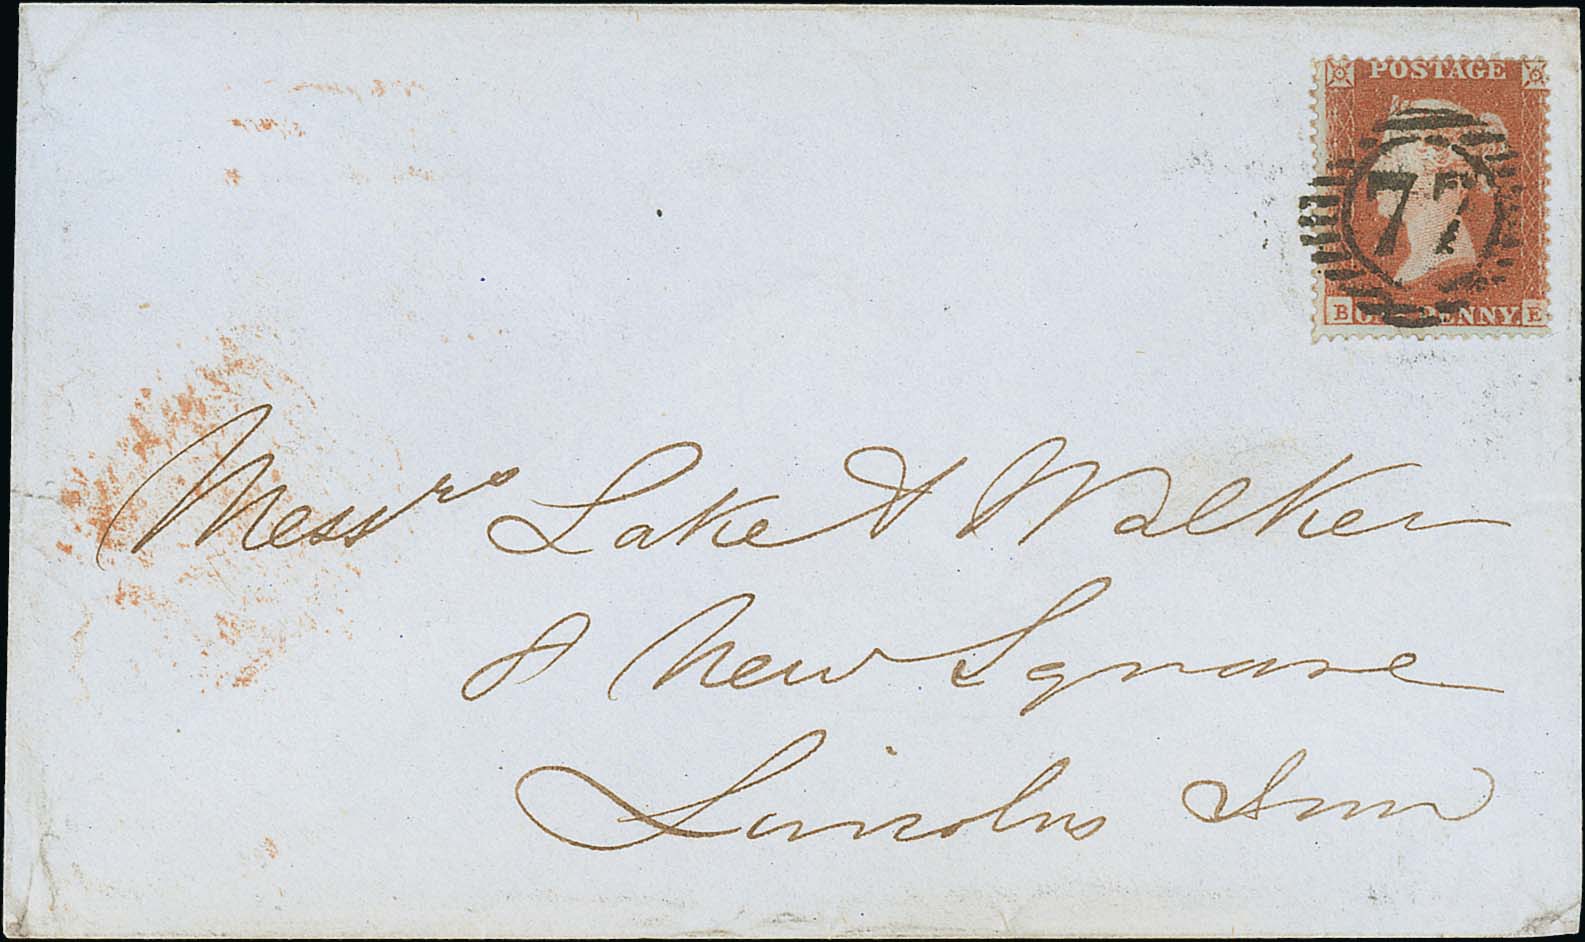 POSTAGE
77
B ONE PENNY. E
Messrs Lake & Walker
8 New Square
Lincolns Inn